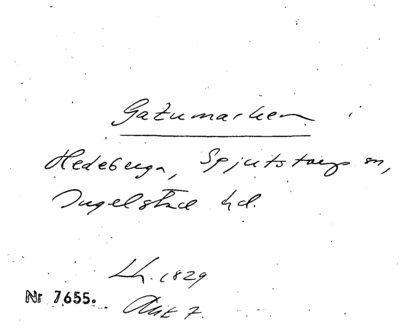 Gatumarken
Hedeberga, Spjutstorp sn,
Ingelstad hd.
Lh. 1829
Nr 7655. Akt 7.